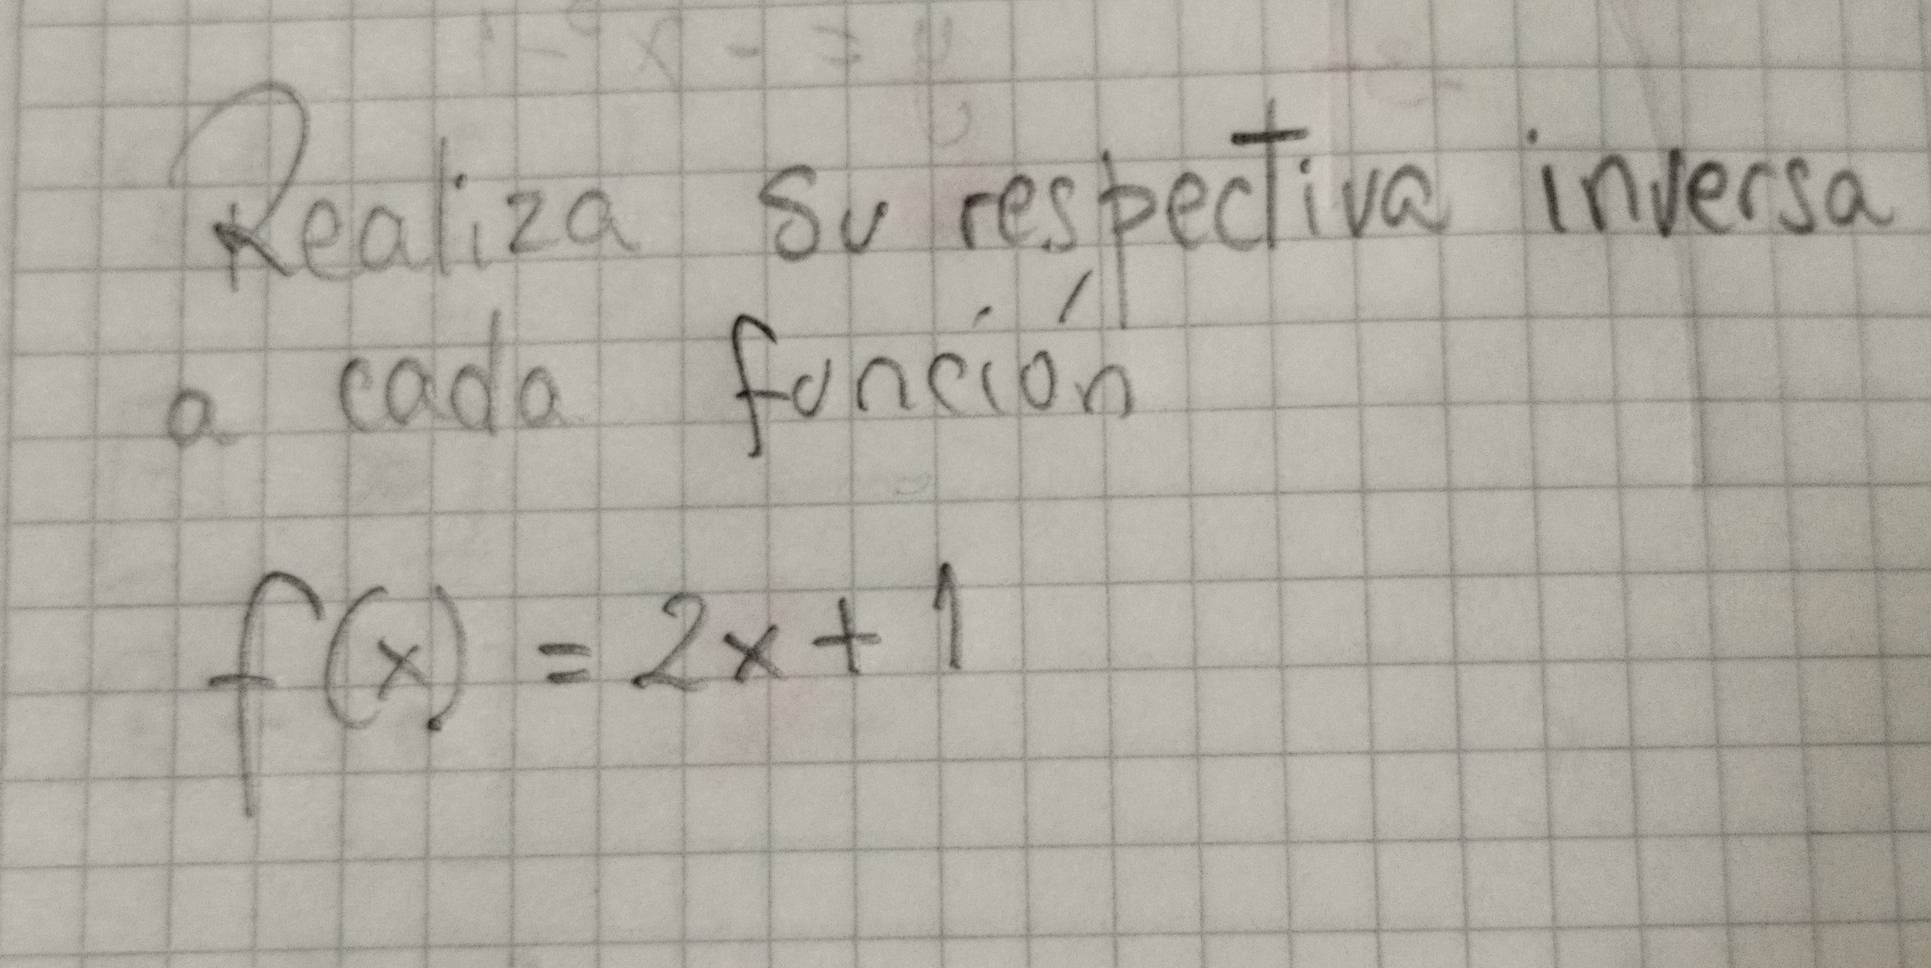 Realiza su respectiva inversa
a cada función
f(x) = 2x + 1